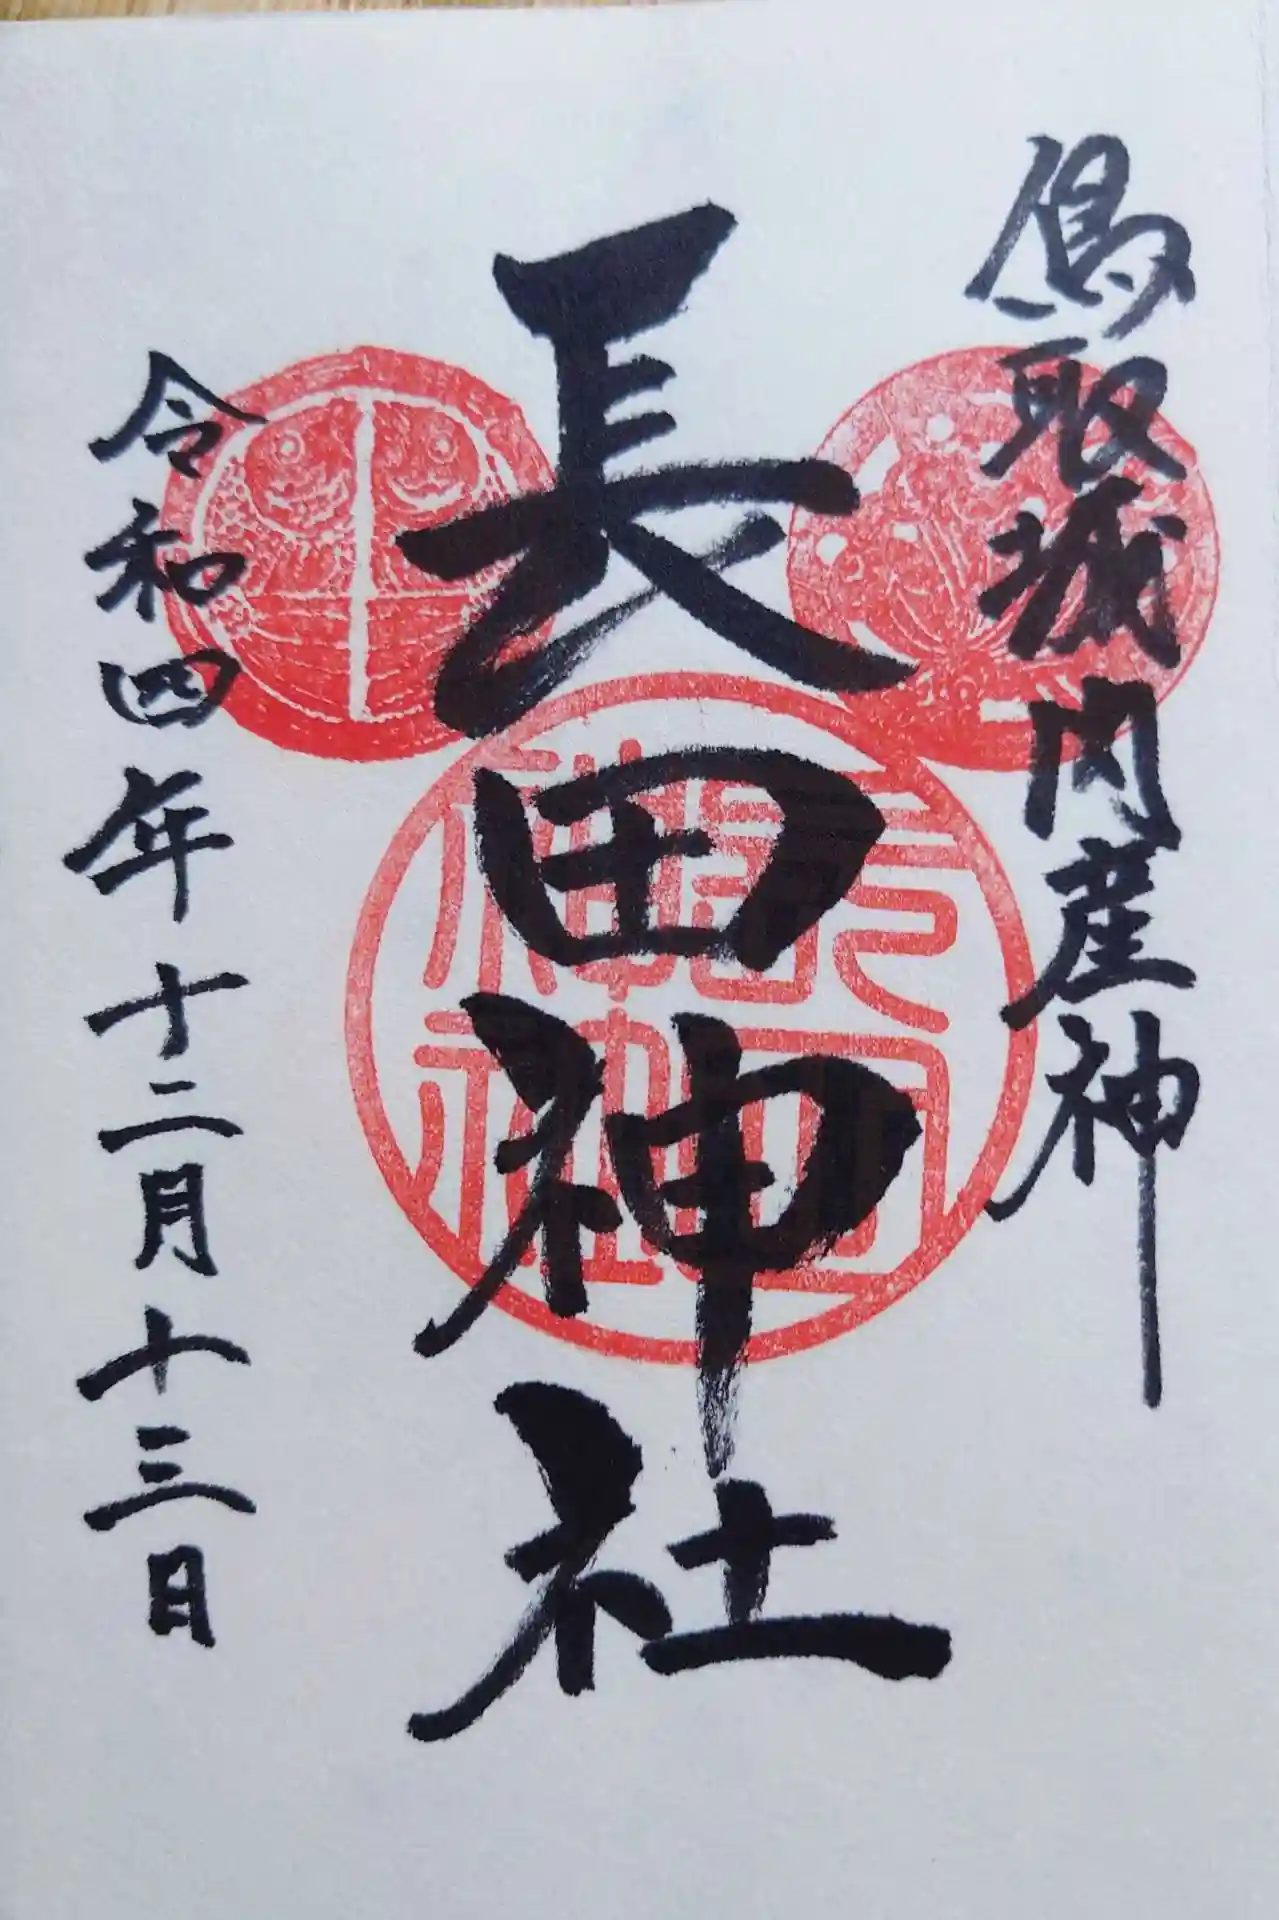 鳥取城内産神
長田神社
令和四年十二月十三日